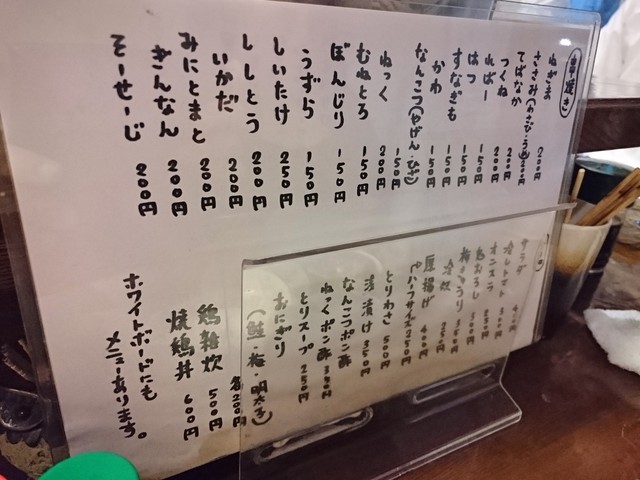 串焼き
ねぎま 200円
ささみ(わさび・うめ) 200円
てばなか 200円
つくね 200円
ればー 150円
はつ 150円
すなぎも 150円
かわ 150円
なんこつ(やげん・ひざ) 150円
ねっく 200円
むねとろ 150円
ぼんじり 150円
うずら 150円
しいたけ 250円
ししとう 200円
いかだ 200円
みにとまと 200円
ぎんなん 200円
そーせーじ 200円
サラダ
冷しトマト
オニスラ
鳥おろし
梅きゅうり
冷奴 250円
厚揚げ 400円
(ハーフサイズ 250円
とりわさ 500円
浅漬け 350円
なんこつポン酢
ねっくポン酢 350円
とりスープ 250円
おにぎり
(鮭・梅・明太子) 各200円
鶏雑炊 500円
焼鶏丼 600円
ホワイトボードにも
メニューあります。